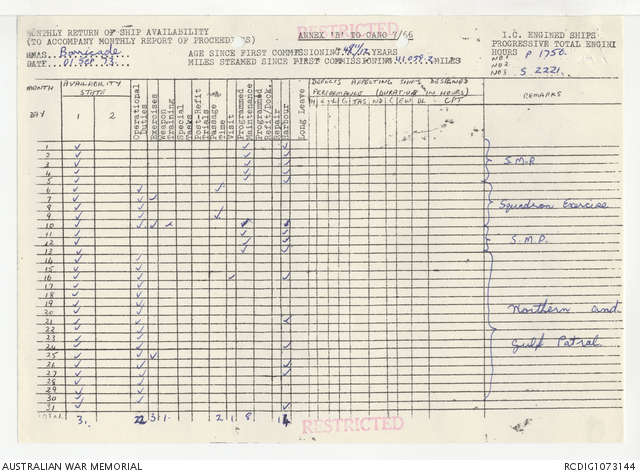 MONTHLY RETURN OF SHIP AVAILABILITY
(TO ACCOMPANY MONTHLY REPORT OF PROCEEDINGS)
RESTRICTED
ANNEX 'B' TO CANO 7/66
HMAS. Barricade
DATE. 01.SEP.73
AGE SINCE FIRST COMMISSIONING YEARS
MILES STEAMED SINCE FIRST COMMISSIONING MILES
I.C. ENGINED SHIPS
PROGRESSIVE TOTAL ENGINE
HOURS P 1750.
NO1
NO2
NO3 S 2221.
MONTH
DAY
AVAILABILITY STATE
1
2
Operational Duties
Exercises
Weapon Training
Special Tasks
Post-Refit Trials
Passage Time
Visit
Programmed Maintenance
Programmed Refit/Dock.
Repair
Harbour
Long Leave
DEFECTS AFFECTING SHIPS DESIGNED
PERFORMANCE (DURATION IN HOURS)
REMARKS
1 ✓ ✓ ✓
2 ✓ ✓ ✓
3 ✓ ✓ ✓ S.M.P.
4 ✓ ✓ ✓
5 ✓ ✓ ✓
6 ✓ ✓ ✓
7 ✓ ✓ ✓
8 ✓ ✓ Squadron Exercise
9 ✓ ✓ ✓
10 ✓ ✓ ✓
11 ✓ ✓ ✓
12 ✓ ✓ ✓ S.M.P.
13 ✓ ✓ ✓
14 ✓ ✓
15 ✓ ✓
16 ✓ ✓ ✓ ✓
17 ✓ ✓
18 ✓ ✓
19 ✓ ✓ Northern and
20 ✓ ✓
21 ✓ ✓ ✓
22 ✓ ✓
23 ✓ ✓ Gulf Patrol
24 ✓ ✓ ✓
25 ✓ ✓ ✓
26 ✓ ✓ ✓
27 ✓ ✓ ✓
28 ✓ ✓
29 ✓ ✓
30 ✓ ✓
31 ✓ ✓
TOTAL 31 22 3 1 2 1 8
RESTRICTED
AUSTRALIAN WAR MEMORIAL
RCDIG1073144